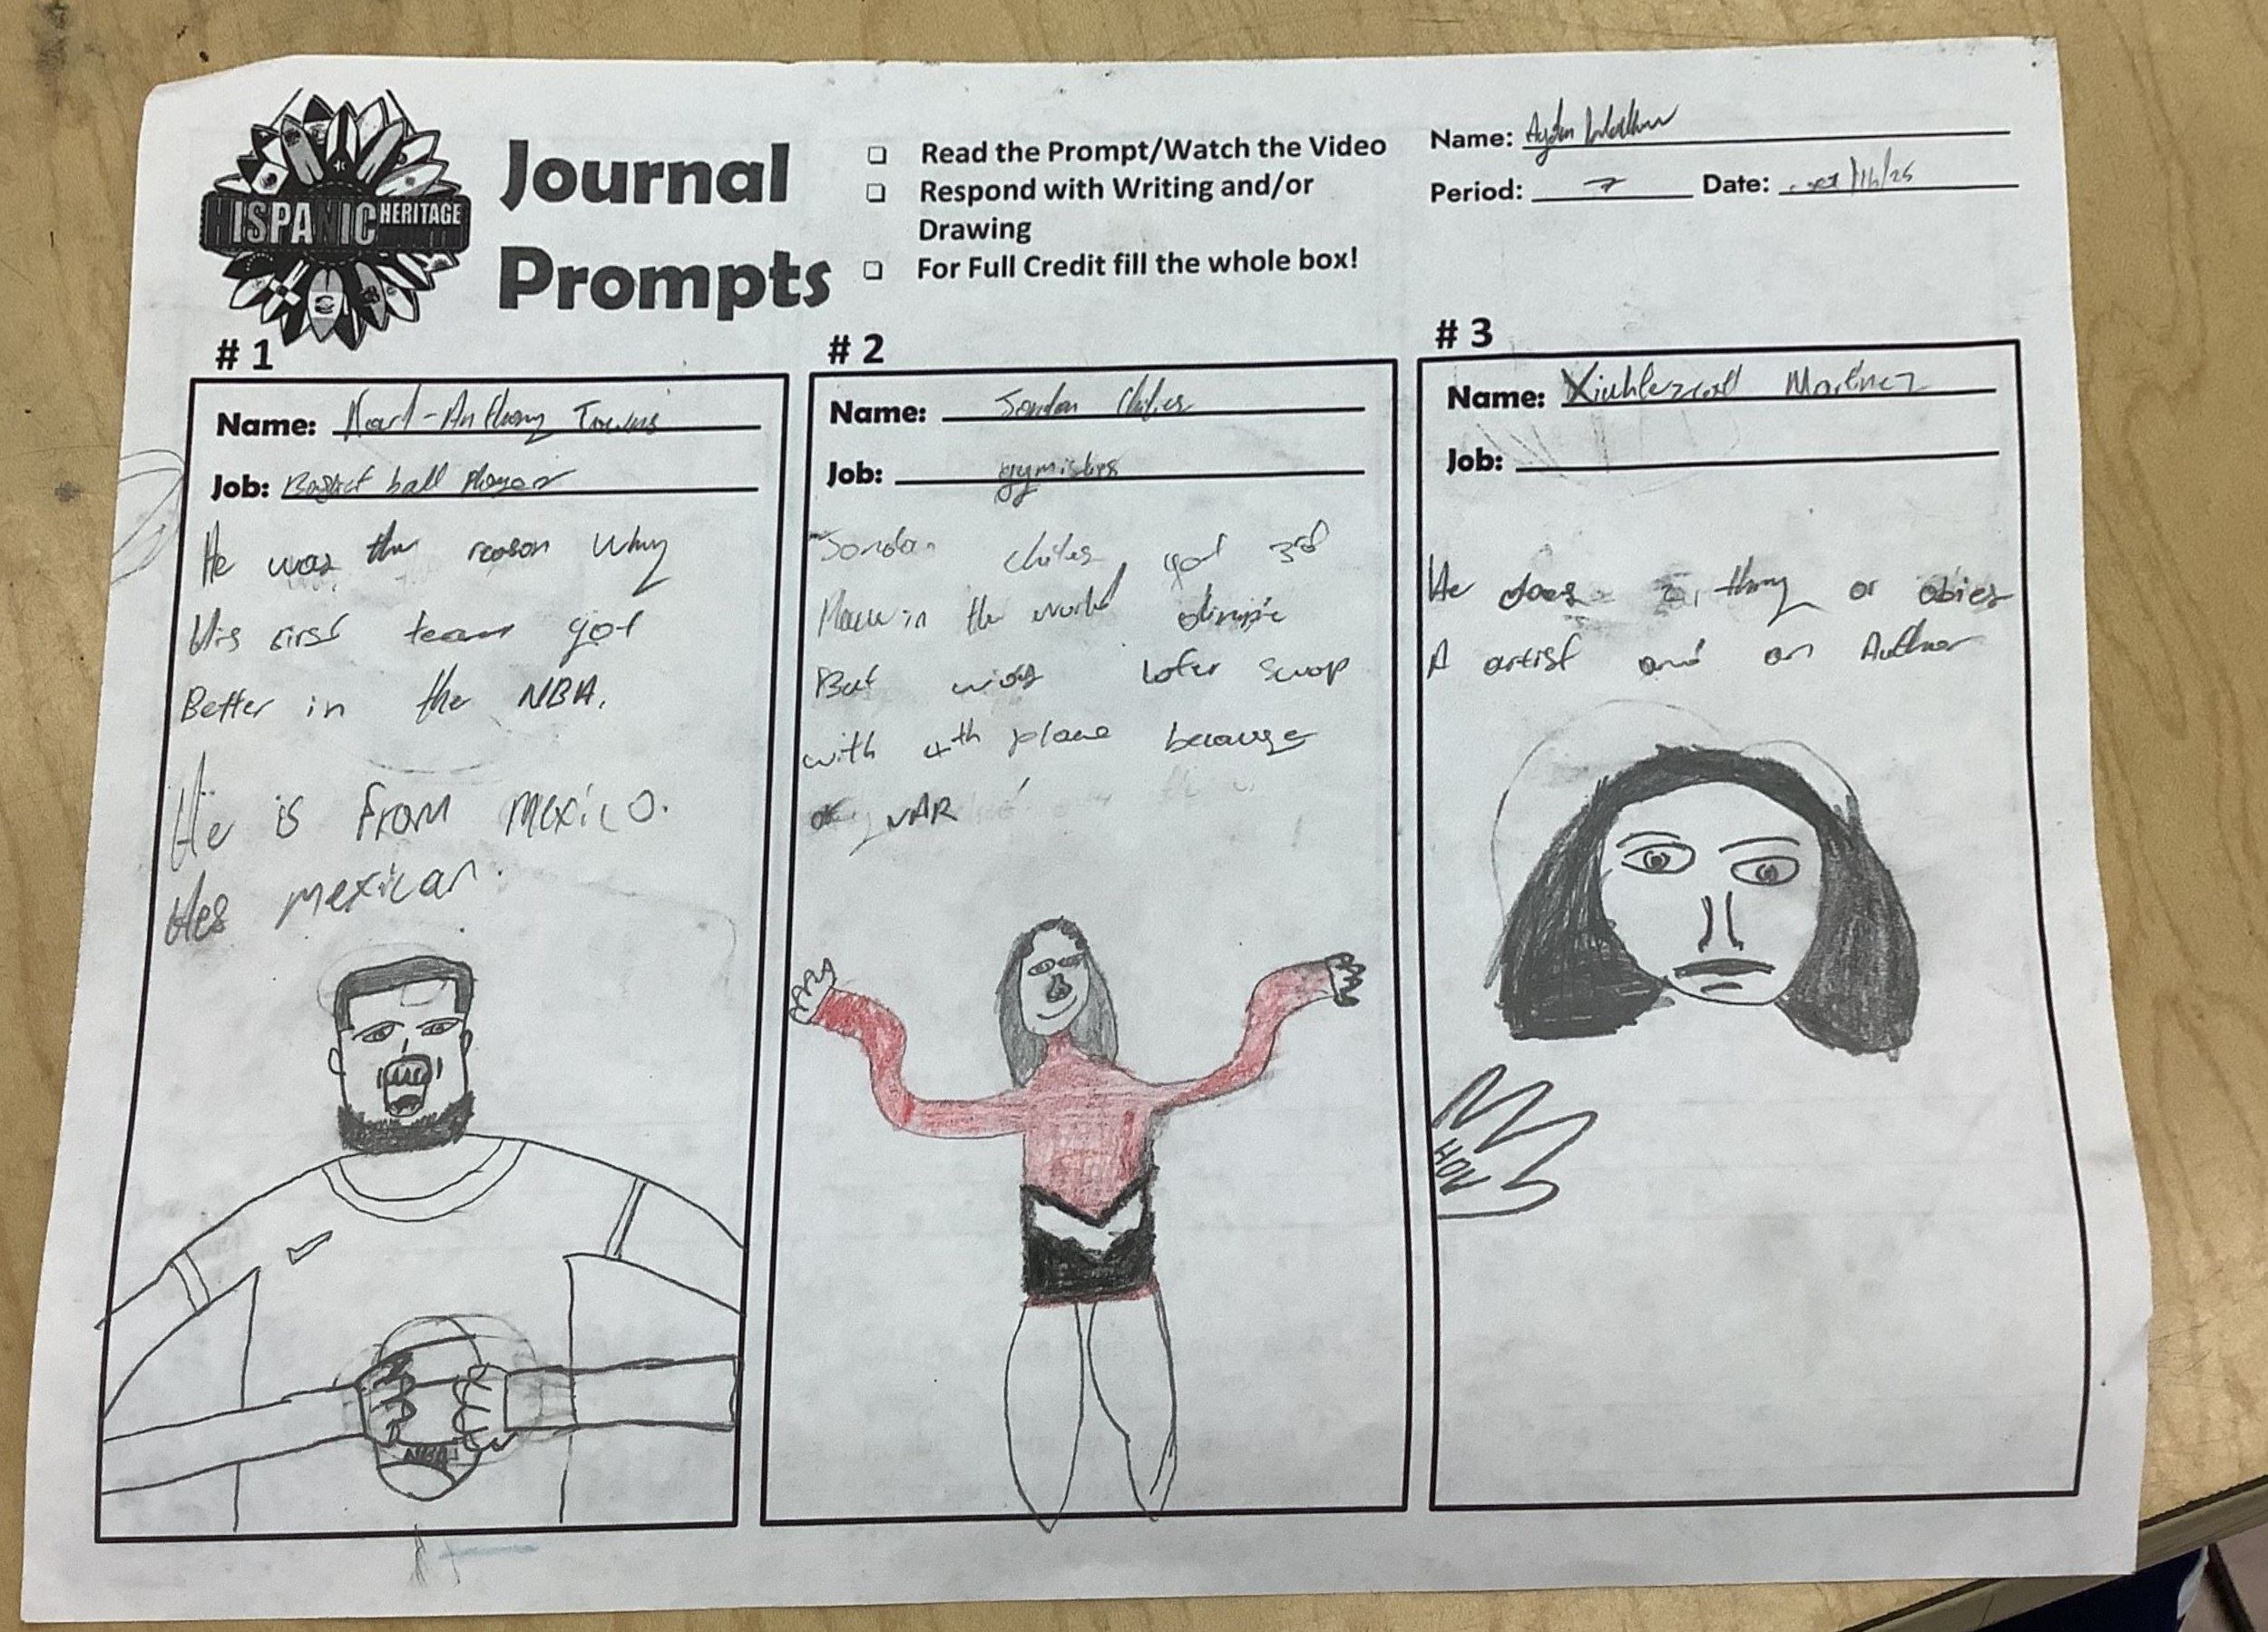 HISPANIC HERITAGE
Journal
Prompts
Read the Prompt/Watch the Video
Respond with Writing and/or
Drawing
For Full Credit fill the whole box!
Name: Ayden
Period: 7 Date: /16/25
# 1
Name: Karl-Anthony Towns
Job: Basket ball Player
He was the reason why
His first team got
Better in the NBA.
He is from mexico.
Hes mexican.
NBA
# 2
Name: Jordan Chiles
Job:
Jordan chiles got 3rd
Place in the world olimpic
But was later swap
with 4th place because
of VAR
# 3
Name: Martinez
Job:
He does thing or
A artist and an Author